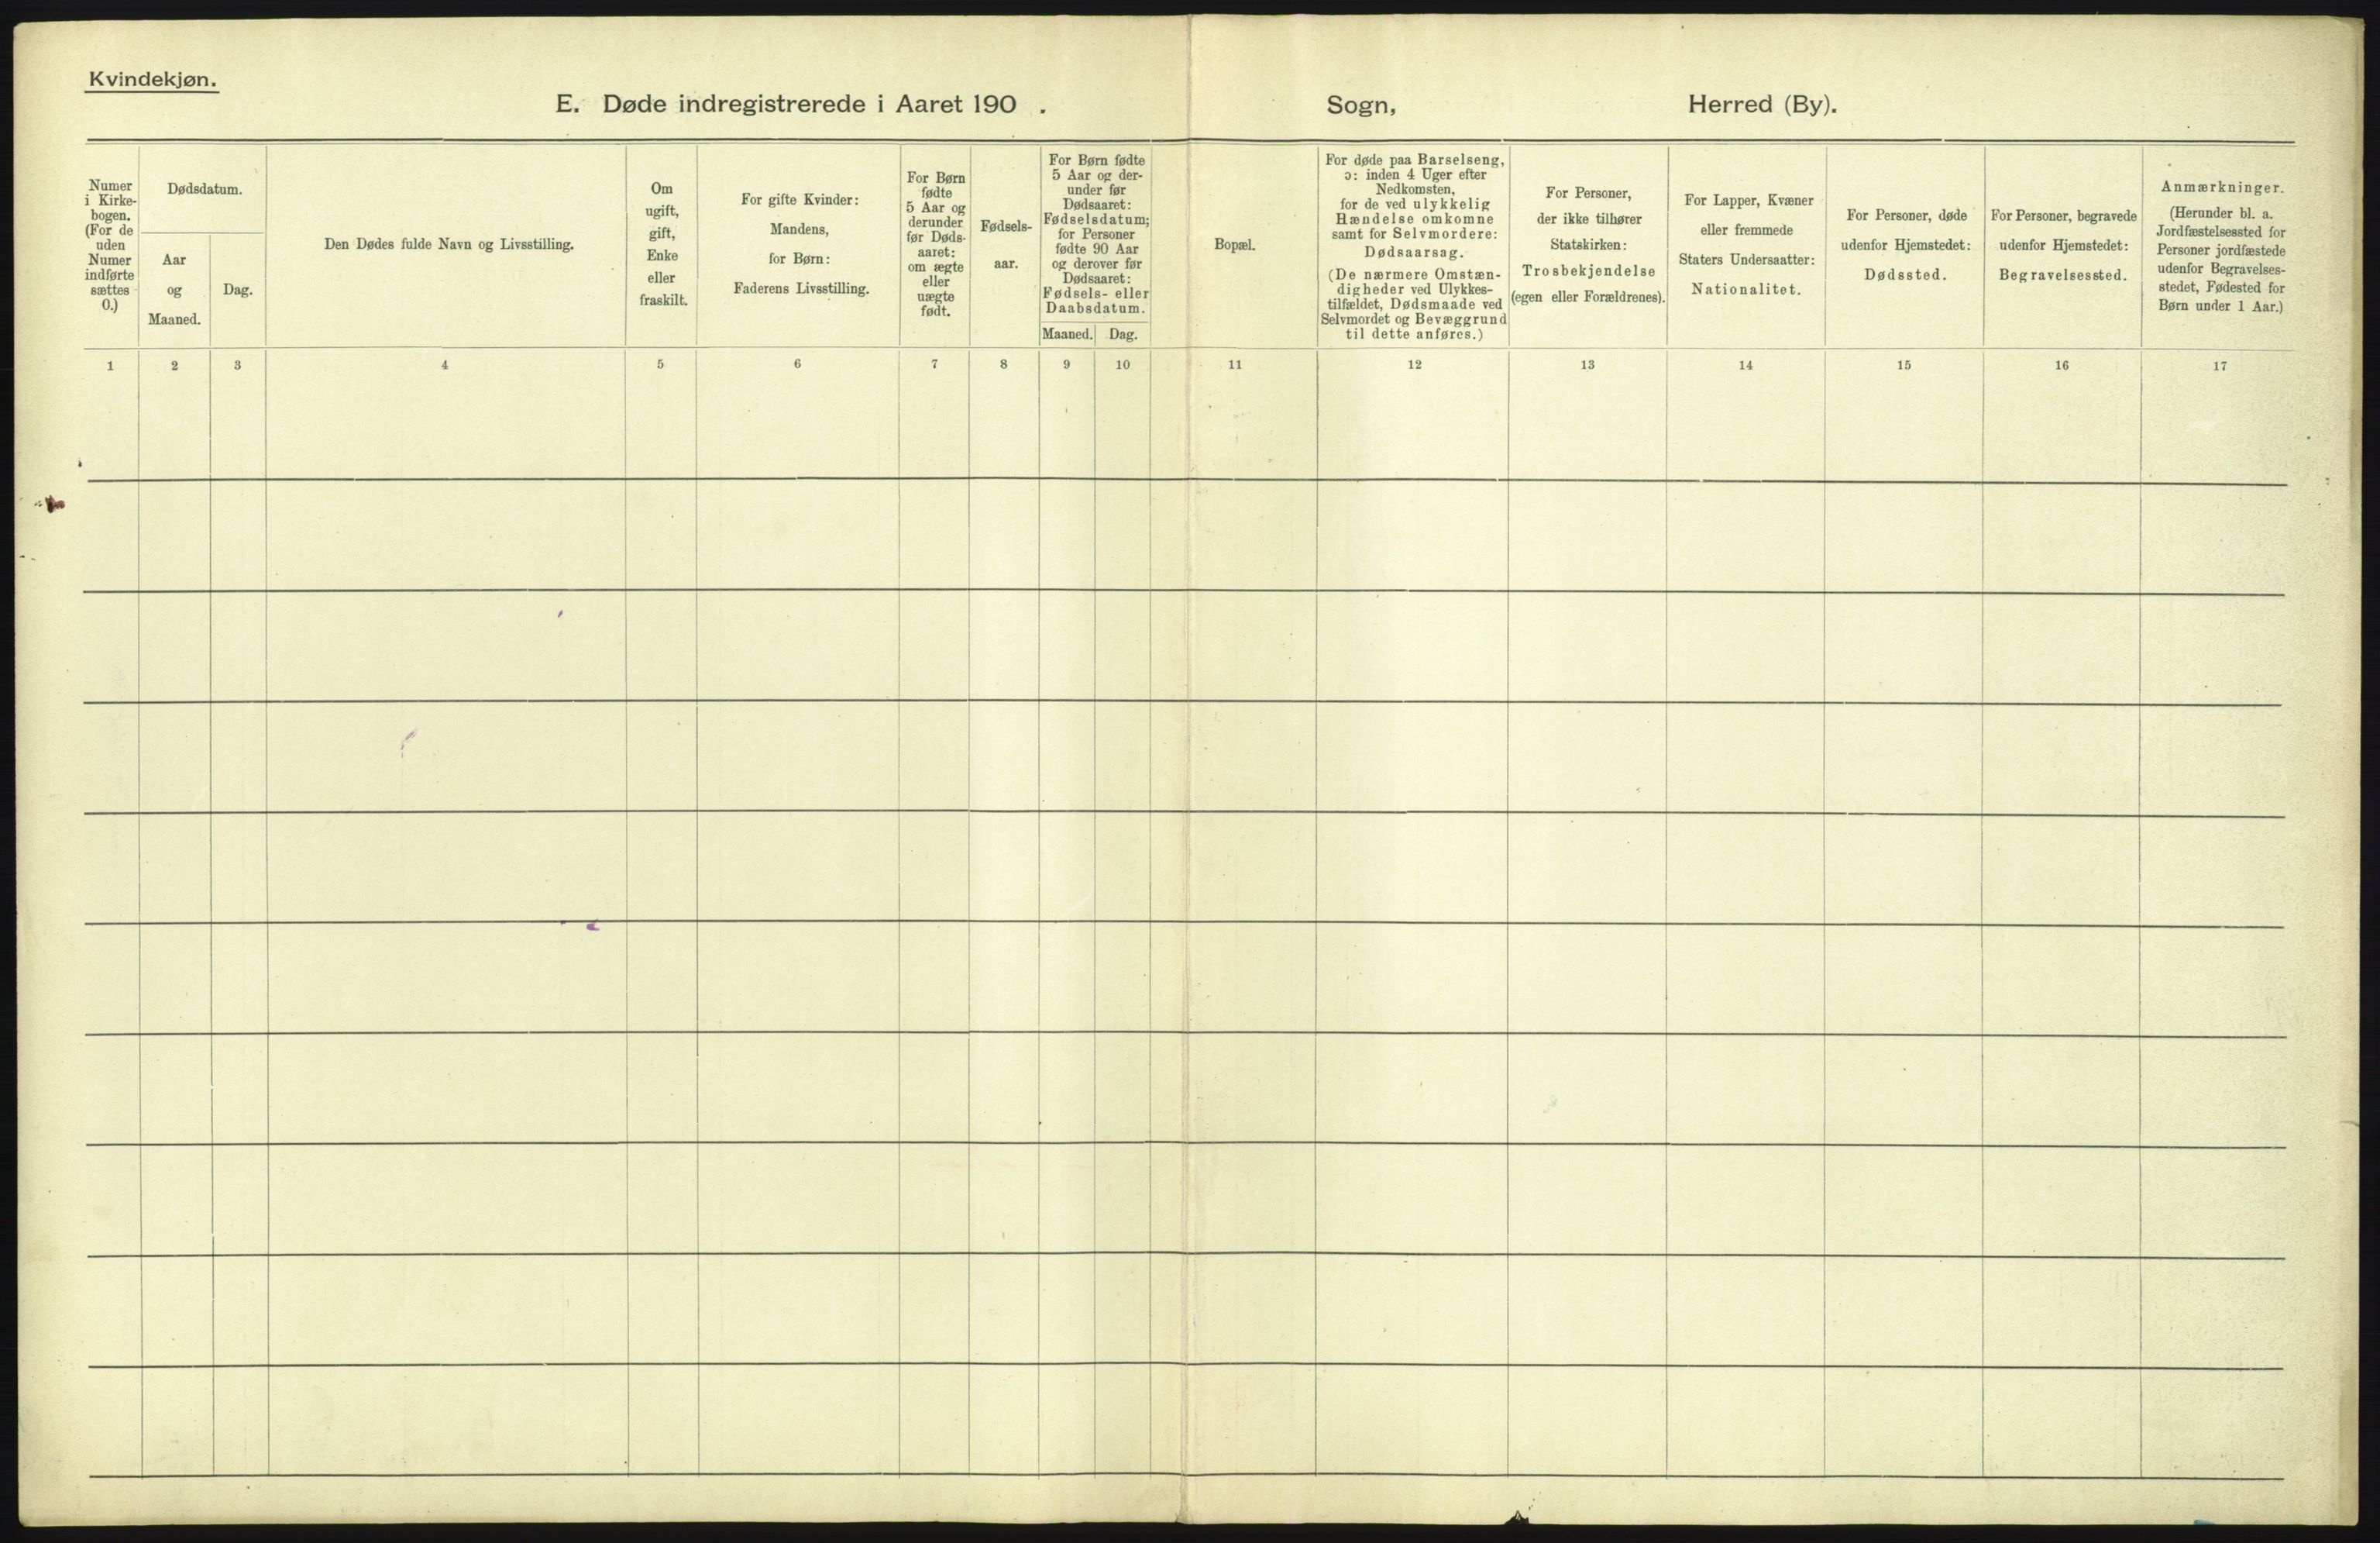 Kvindekjøn.
E. Døde indregistrerede i Aaret 190 . Sogn, Herred (By).
Numer
i Kirke-
bogen.
(For de
uden
Numer
indførte
sættes
0.)
Dødsdatum.
Aar
og
Maaned.
Dag.
Den Dødes fulde Navn og Livsstilling.
Om
ugift,
gift,
Enke
eller
fraskilt.
For gifte Kvinder:
Mandens,
for Børn:
Faderens Livsstilling.
For Børn
fødte
5 Aar og
derunder
før Døds-
aaret:
om ægte
eller
uægte
født.
Fødsels-
aar.
For Børn fødte
5 Aar og der-
under før
Dødsaaret:
Fødselsdatum;
for Personer
fødte 90 Aar
og derover før
Dødsaaret:
Fødsels- eller
Daabsdatum.
Maaned. Dag.
Bopæl.
For døde paa Barselseng,
ɔ: inden 4 Uger efter
Nedkomsten,
for de ved ulykkelig
Hændelse omkomne
samt for Selvmordere:
Dødsaarsag.
(De nærmere Omstæn-
digheder ved Ulykkes-
tilfældet, Dødsmaade ved
Selvmordet og Bevæggrund
til dette anføres.)
For Personer,
der ikke tilhører
Statskirken:
Trosbekjendelse
(egen eller Forældrenes).
For Lapper, Kvæner
eller fremmede
Staters Undersaatter:
Nationalitet.
For Personer, døde
udenfor Hjemstedet:
Dødssted.
For Personer, begravede
udenfor Hjemstedet:
Begravelsessted.
Anmærkninger.
(Herunder bl. a.
Jordfæstelsessted for
Personer jordfæstede
udenfor Begravelses-
stedet, Fødested for
Børn under 1 Aar.)
1 2 3 4 5 6 7 8 9 10 11 12 13 14 15 16 17